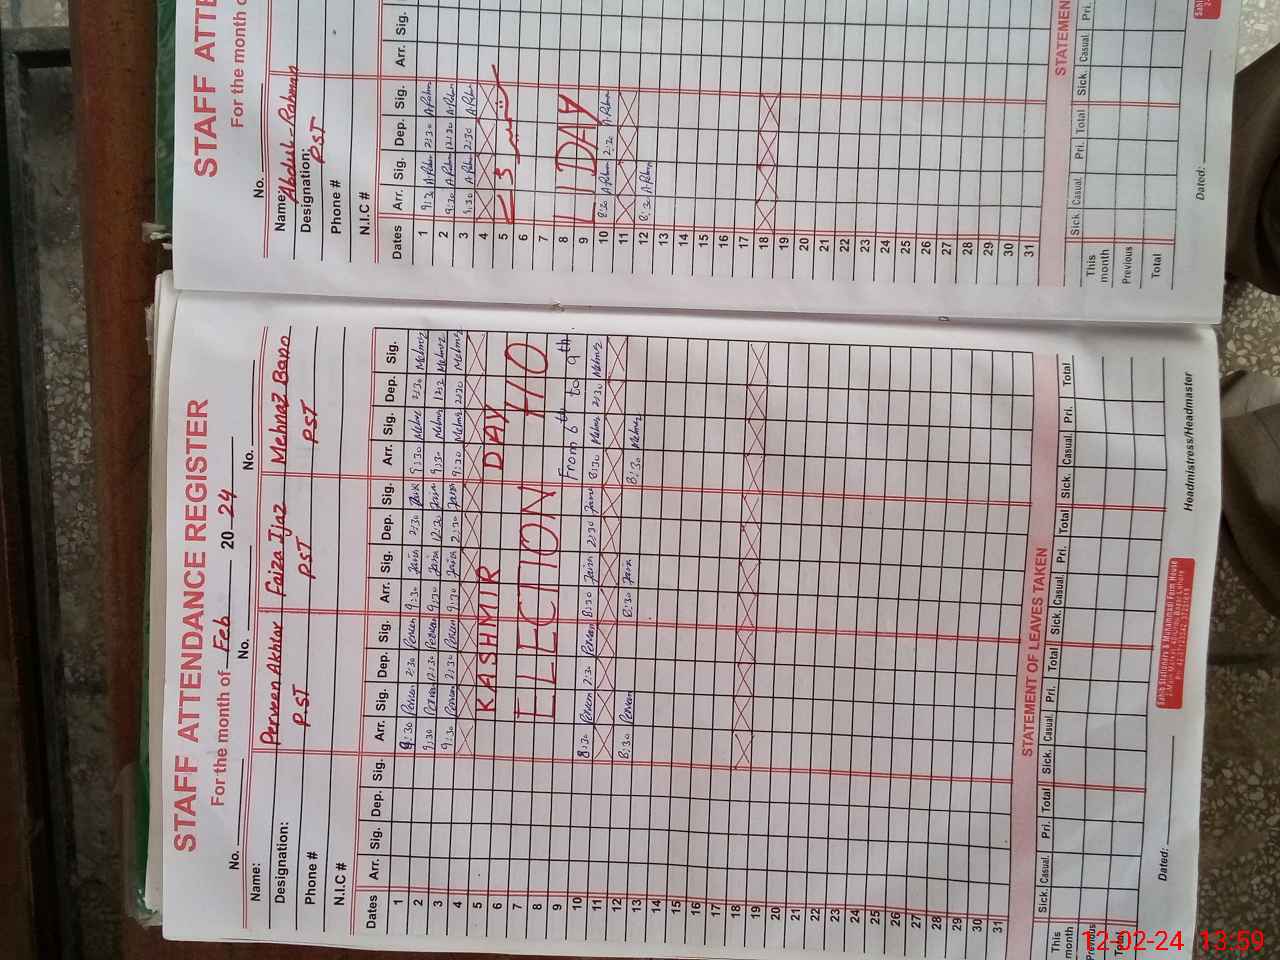 STAFF ATTENDANCE REGISTER
For the month of Feb 20 24
No. No. No.
Name: Perveen Akhtar Faiza Ijaz Mehnaz Bano
Designation: PST PST PST
Phone #
N.I.C #
Dates Arr. Sig. Dep. Sig. Arr. Sig. Dep. Sig. Arr. Sig. Dep. Sig. Arr. Sig. Dep. Sig.
1 9:30 Perveen 2:30 Perveen 9:30 2:30 9:30 2:30
2 9:30 Perveen 12:30 Perveen 9:30 9:30
3 9:30 Perveen 2:30 Perveen 9:30 2:30 9:30 2:30
4
5 KASHMIR DAY
6
7 ELECTION HO
8
9 From 6th to 9th
10 8:30 Perveen 2:30 Perveen 8:30 2:30 8:30 2:30
11
12 8:30 Perveen 8:30 8:30
13
14
15
16
17
18
19
20
21
22
23
24
25
26
27
28
29
30
31
STATEMENT OF LEAVES TAKEN
Sick. Casual. Pri. Total Sick. Casual. Pri. Total Sick. Casual. Pri. Total Sick. Casual. Pri. Total
This month
Previous
Total
Dated:
Sahib Stationers & Muhammadi Form House
Headmistress/Headmaster
STAFF ATTE
For the month o
No.
Name: Abdul-Rahman
Designation: PST
Phone #
N.I.C #
Dates Arr. Sig. Dep. Sig. Arr. Sig.
1 2:30
2 9:30 12:30
3 9:30 2:30
4
5
6
7
8 LIDAY
9
10 8:30 2:30
11
12 8:30
13
14
15
16
17
18
19
20
21
22
23
24
25
26
27
28
29
30
31
STATEMEN
Sick. Casual. Pri. Total Sick. Casual. Pri.
This month
Previous
Total
Dated:
12-02-24 13:59